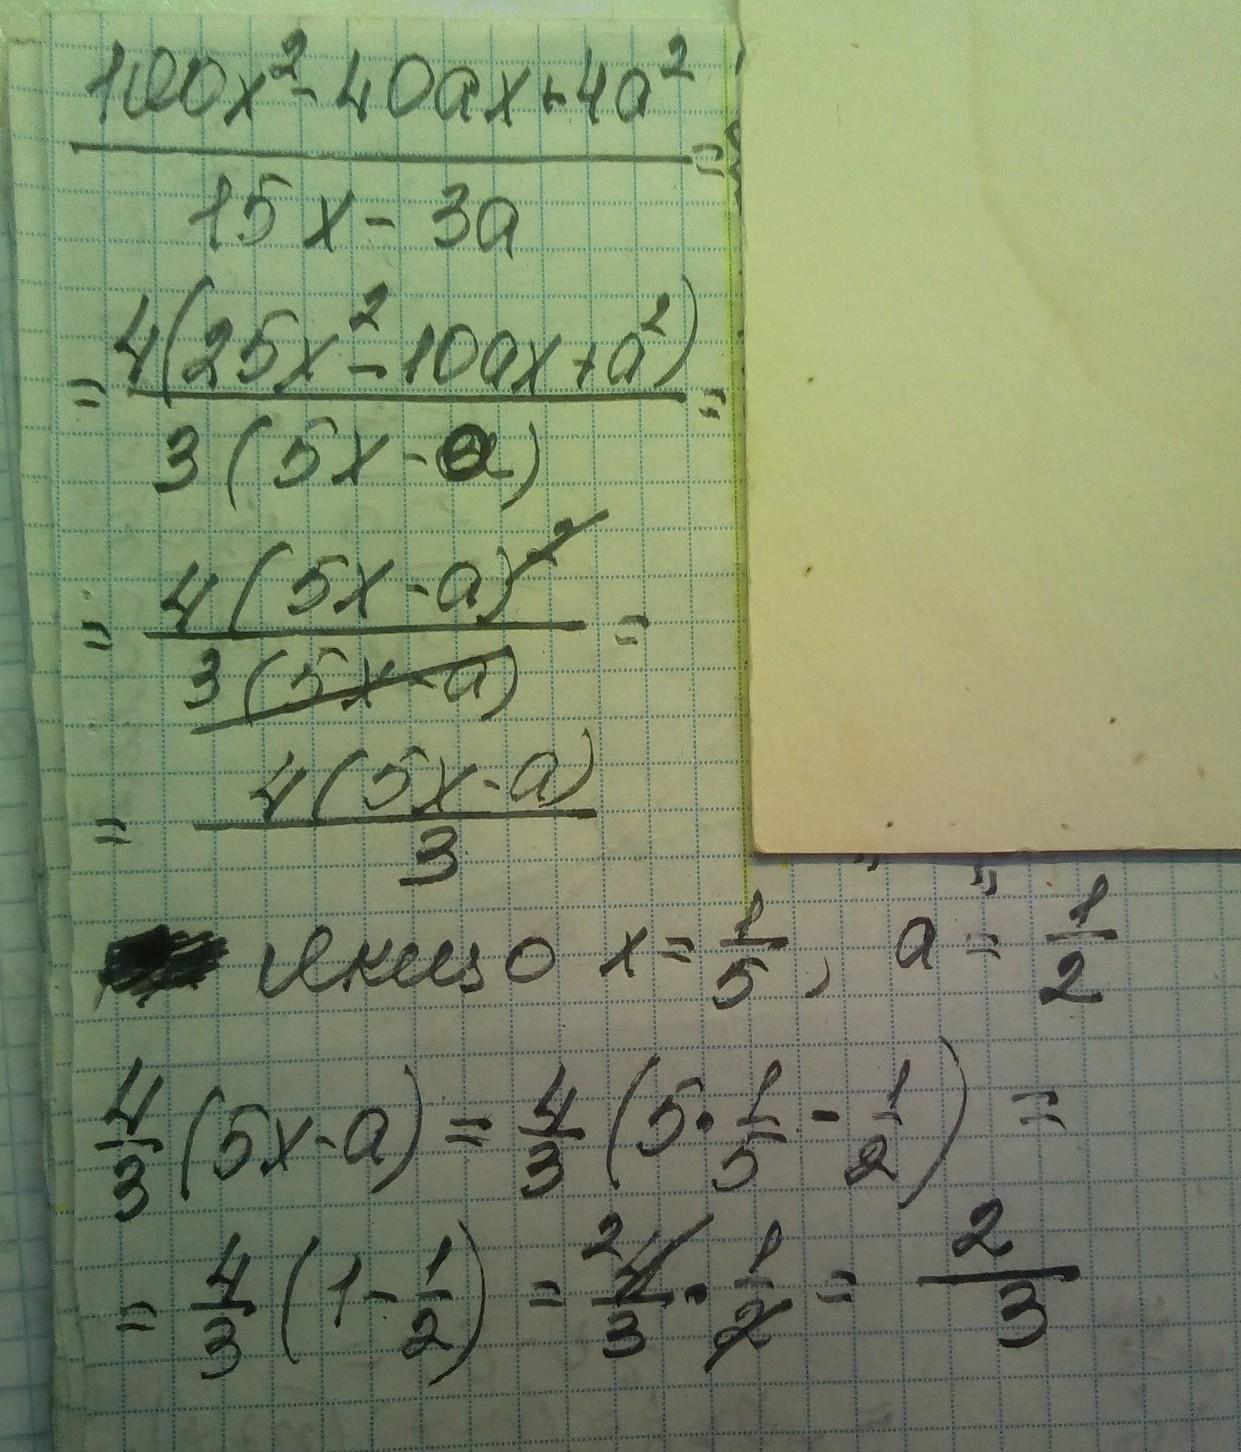 100x² - 40ax + 4a²
=
15x - 3a
= 4(25x² - 10ax + a²) =
3(5x - a)
= 4(5x - a)² =
3(5x - a)
= 4(5x - a)
3
якщо x = 1/5, a = 1/2
4/3 (5x - a) = 4/3 (5 · 1/5 - 1/2) =
= 4/3 (1 - 1/2) = 2 4/3 · 1/2 = 2/3